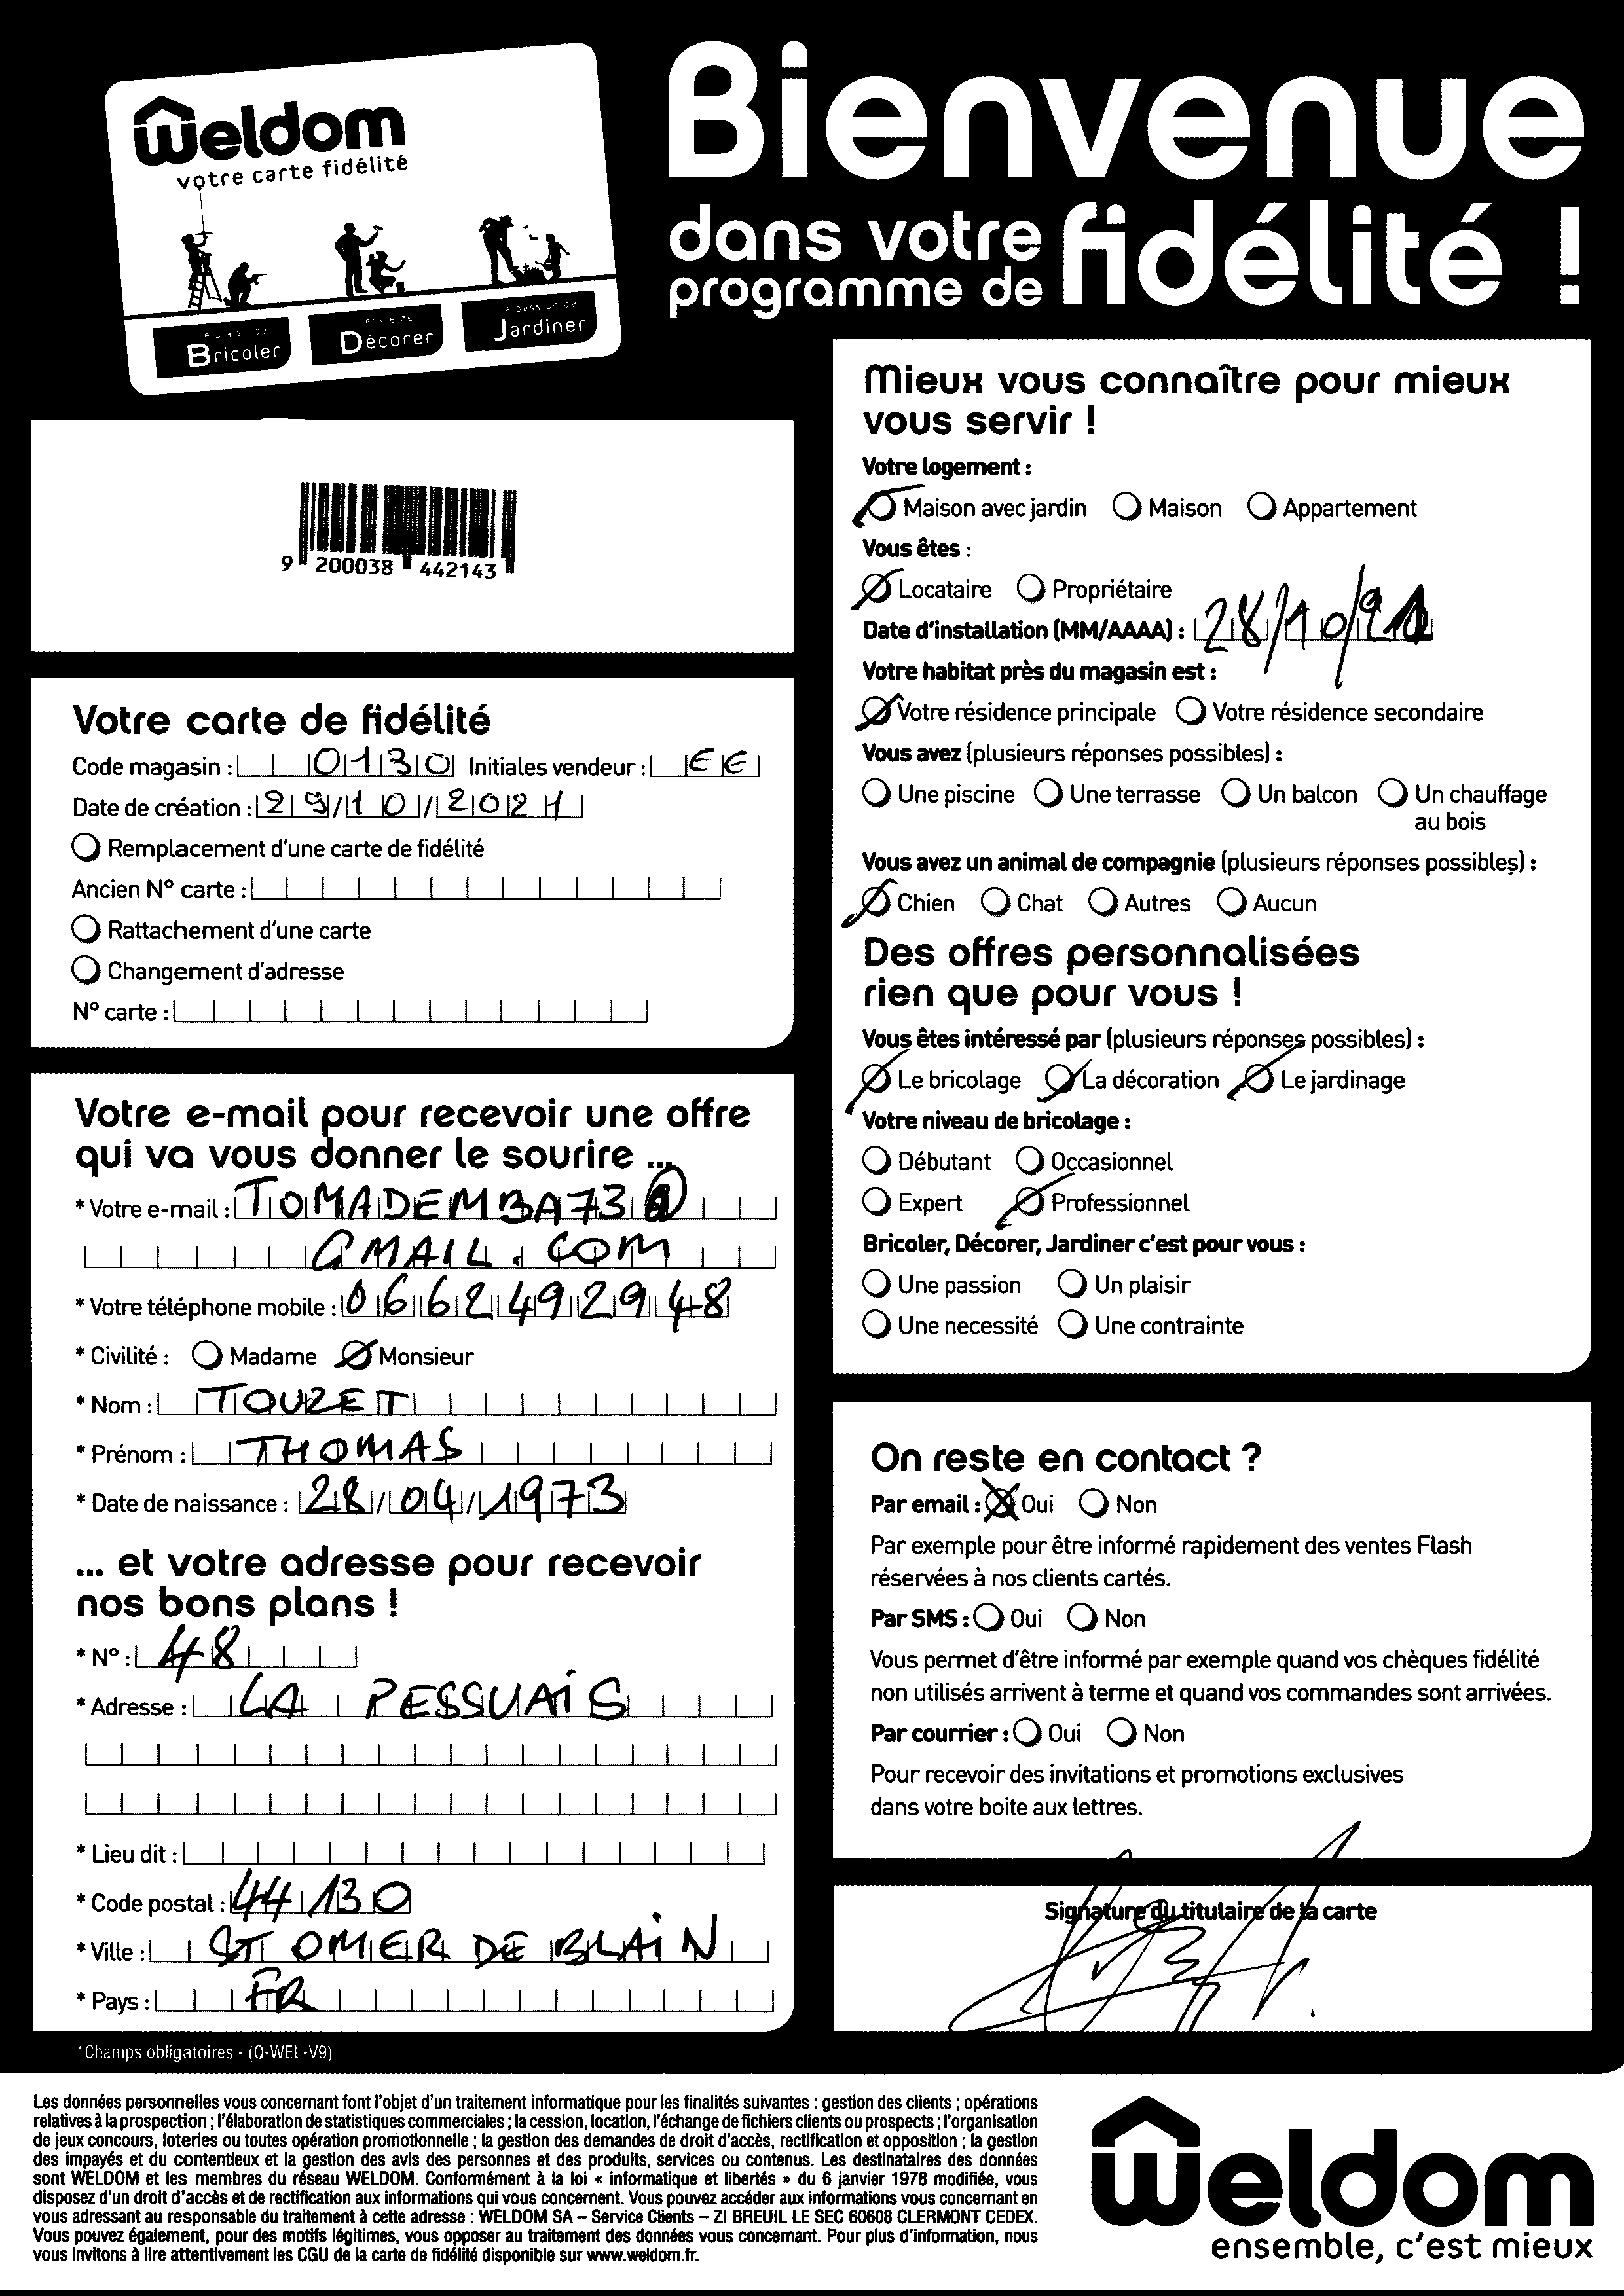 weldom
votre carte fidélité
Bricoler
Décorer
Jardiner
Bienvenue
dans votre
programme de fidélité !
9 200038 442143
Votre carte de fidélité
Code magasin : 0130 Initiales vendeur : EE
Date de création : 29/10/2021
Remplacement d'une carte de fidélité
Ancien N° carte :
Rattachement d'une carte
Changement d'adresse
N° carte :
Votre e-mail pour recevoir une offre
qui va vous donner le sourire ...
* Votre e-mail : TOMADEMBA73@
GMAIL.COM
* Votre téléphone mobile : 0662492948
* Civilité : Madame Monsieur
* Nom : TOUZET
* Prénom : THOMAS
* Date de naissance : 28/04/1973
... et votre adresse pour recevoir
nos bons plans !
* N° : 48
* Adresse : LA PESSUAIS
* Lieu dit :
* Code postal : 44130
* Ville : ST OMER DE BLAIN
* Pays : FR
*Champs obligatoires - (Q-WEL-V9)
Mieux vous connaître pour mieux
vous servir !
Votre logement :
Maison avec jardin Maison Appartement
Vous êtes :
Locataire Propriétaire
Date d'installation (MM/AAAA) : 28/10/21
Votre habitat près du magasin est :
Votre résidence principale Votre résidence secondaire
Vous avez (plusieurs réponses possibles) :
Une piscine Une terrasse Un balcon Un chauffage
au bois
Vous avez un animal de compagnie (plusieurs réponses possibles) :
Chien Chat Autres Aucun
Des offres personnalisées
rien que pour vous !
Vous êtes intéressé par (plusieurs réponses possibles) :
Le bricolage La décoration Le jardinage
Votre niveau de bricolage :
Débutant Occasionnel
Expert Professionnel
Bricoler, Décorer, Jardiner c'est pour vous :
Une passion Un plaisir
Une necessité Une contrainte
On reste en contact ?
Par email : Oui Non
Par exemple pour être informé rapidement des ventes Flash
réservées à nos clients cartés.
Par SMS : Oui Non
Vous permet d'être informé par exemple quand vos chèques fidélité
non utilisés arrivent à terme et quand vos commandes sont arrivées.
Par courrier : Oui Non
Pour recevoir des invitations et promotions exclusives
dans votre boite aux lettres.
Signature du titulaire de la carte
Les données personnelles vous concernant font l'objet d'un traitement informatique pour les finalités suivantes : gestion des clients ; opérations
relatives à la prospection ; l'élaboration de statistiques commerciales ; la cession, location, l'échange de fichiers clients ou prospects ; l'organisation
de jeux concours, loteries ou toutes opération promotionnelle ; la gestion des demandes de droit d'accès, rectification et opposition ; la gestion
des impayés et du contentieux et la gestion des avis des personnes et des produits, services ou contenus. Les destinataires des données
sont WELDOM et les membres du réseau WELDOM. Conformément à la loi « informatique et libertés » du 6 janvier 1978 modifiée, vous
disposez d'un droit d'accès et de rectification aux informations qui vous concernent. Vous pouvez accéder aux informations vous concernant en
vous adressant au responsable du traitement à cette adresse : WELDOM SA – Service Clients – ZI BREUIL LE SEC 60608 CLERMONT CEDEX.
Vous pouvez également, pour des motifs légitimes, vous opposer au traitement des données vous concernant. Pour plus d'information, nous
vous invitons à lire attentivement les CGU de la carte de fidélité disponible sur www.weldom.fr.
weldom
ensemble, c'est mieux